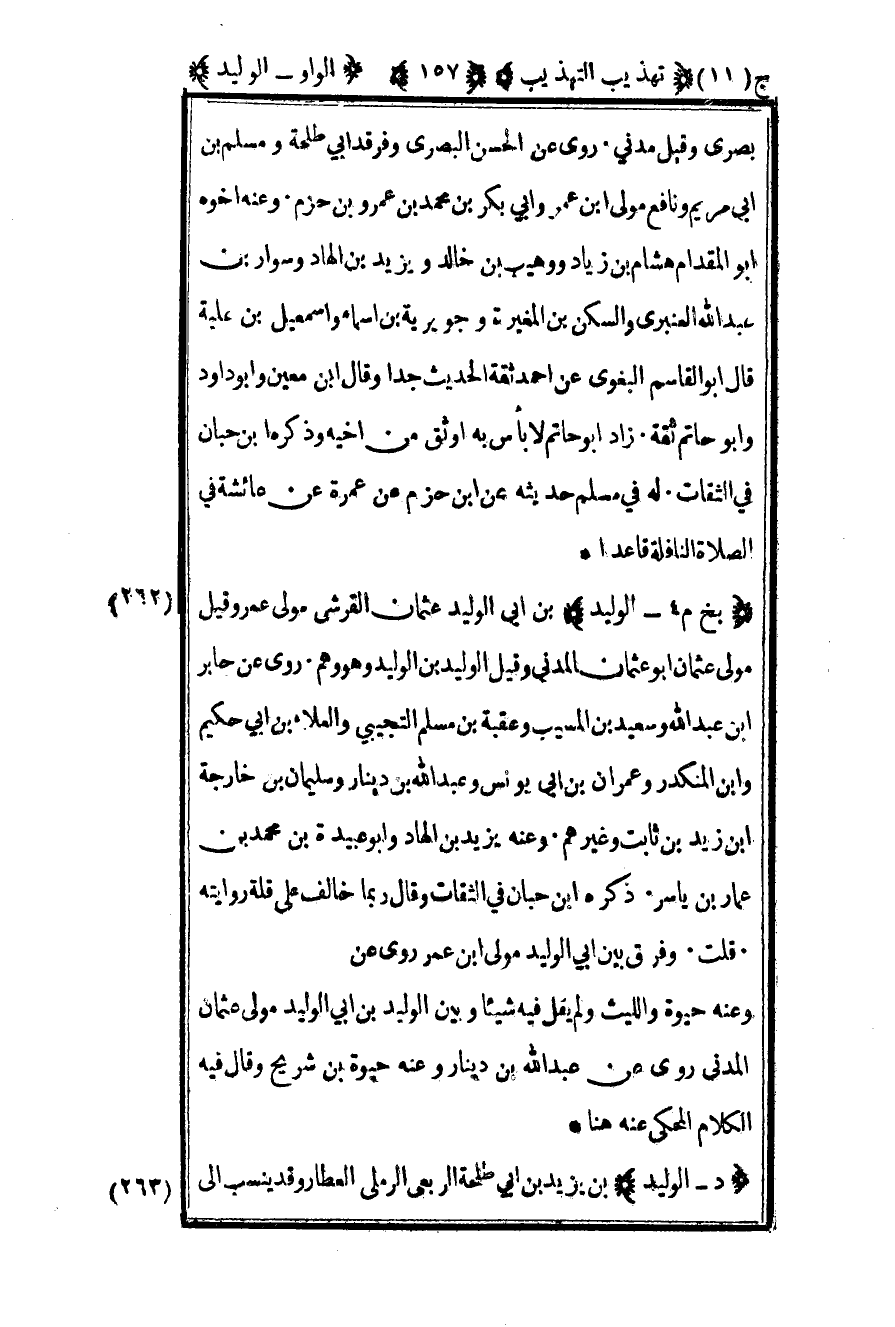 ج (١١) تهذيب التهذيب ١٥٧ الواو ـ الوليد
بصرى وقيل مدني · روى عن الحسن البصرى وفرقد ابي طلحة و مسلم بن
ابي مريم ونافع مولى ابن عمر وابي بكر بن محمد بن عمرو بن حزم · وعنه اخوه
ابو المقدام هشام بن زياد ووهيب بن خالد و يزيد بن الهاد وسوار بن
عبدالله العنبرى والسكن بن المغيرة و جويرية بن اسماء واسمعيل بن علية
قال ابو القاسم البغوى عن احمد ثقة الحديث جدا وقال ابن معين وابو داود
وابو حاتم ثقة · زاد ابو حاتم لا بأس به اوثق من اخيه وذكره ابن حبان
في الثقات · له في مسلم حديثه عن ابن حزم عن عمرة عن عائشة في
الصلاة النافلة قاعدا *
(٢٦٢) بخ م٤ ـ الوليد بن ابي الوليد عثمان القرشى مولى عمر وقيل
مولى عثمان ابو عثمان المدني وقيل الوليد بن الوليد وهو وهم · روى عن جابر
ابن عبدالله وسعيد بن المسيب وعقبة بن مسلم التجيبي والعلاء بن ابي حكيم
وابن المنكدر وعمران بن ابي يونس وعبدالله بن دينار وسليمان بن خارجة
ابن زيد بن ثابت وغيرهم · وعنه يزيد بن الهاد وابو عبيدة بن محمد بن
عمار بن ياسر · ذكره ابن حبان في الثقات وقال ربما خالف على قلة روايته
· قلت · وفرق بين ابي الوليد مولى ابن عمر روى عن
وعنه حيوة والليث ولم يقل فيه شيئا و بين الوليد بن ابي الوليد مولى عثمان
المدنى روى عن عبدالله بن دينار و عنه حيوة بن شريح وقال فيه
الكلام المحكى عنه هنا *
(٢٦٣) د ـ الوليد بن يزيد بن ابي طلحة الربعى الرملى العطار وقد ينسب الى